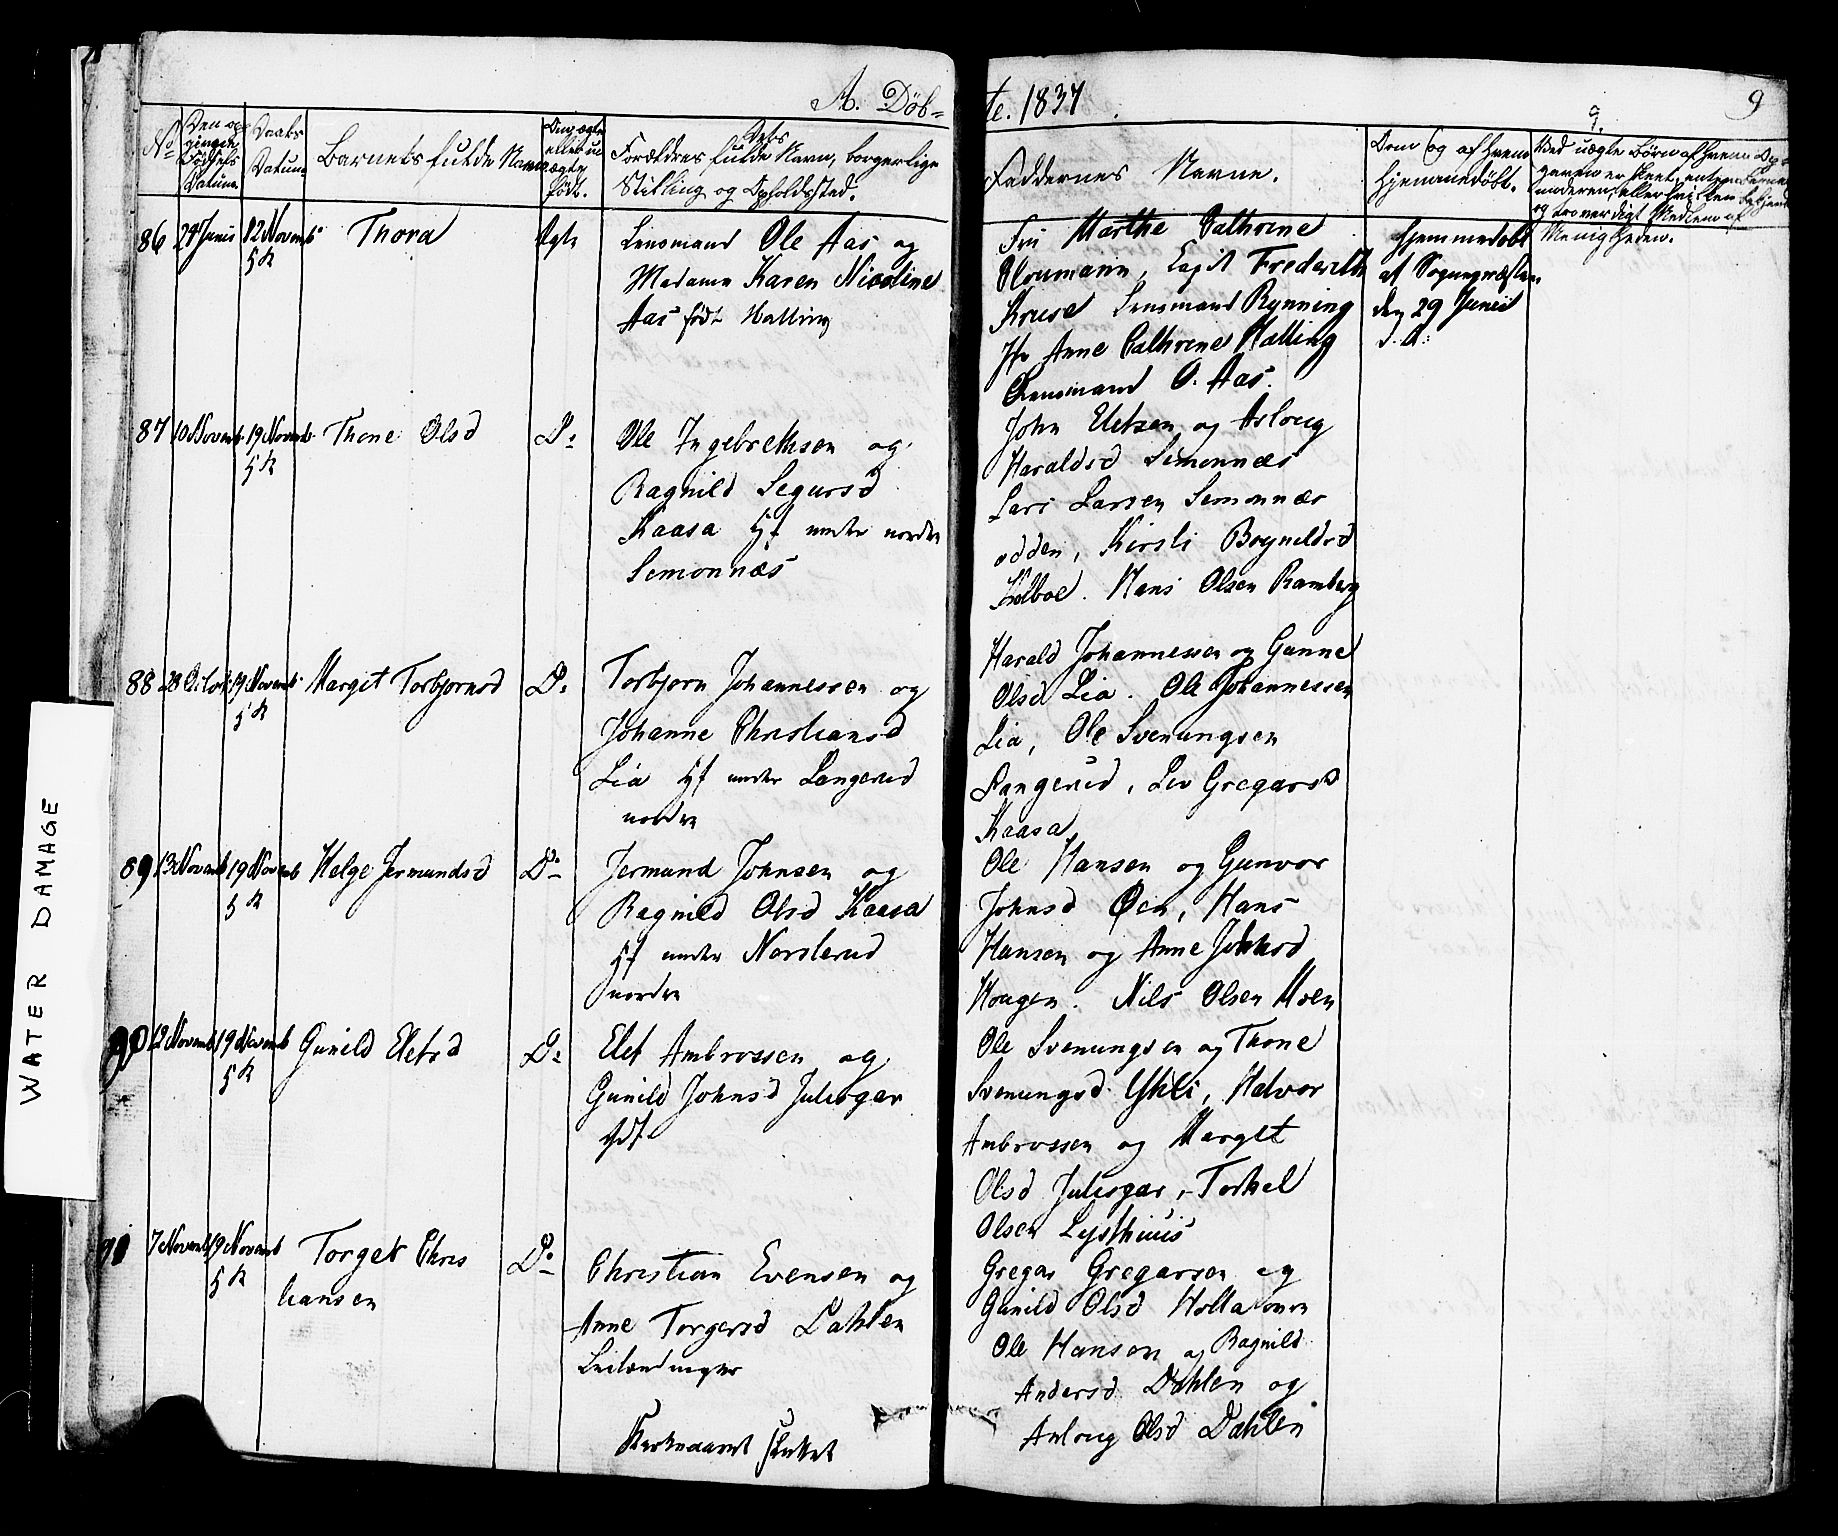 A. Døb=
te. 1837
9
9.
No
Den op
gingen
Fødsels
Datum.
Daabs
Datum.
Barnets fulde Navn
Om ægte
eller u
ægte
født.
Forældres fulde Navn, borgerlige
Stilling og Opholdssted.
Faddernes Navne.
Hjemmedøbt.
Med uægte Børn af hvem Op
og troverdigt Medlem af
Menigheden.
86 24 Junii 12 Novemb Thora Ægte
Lensmand Ole Aas og
Madame Karen Nicoline
Aas født Halling
Marthe Cathrine
Frederich
Kruse Lensmand Rynning
Jfr Anne Cathrine Halling
Lensmand O. Aas.
Hjemmedøbt
af Sognepræsten
den 29 Junii
87 10 Novemb 19 Novemb Thone Olsd Do
Ole Ingebrethsen og
Ragnild Segursd
Kaasa Hf under nordre
Semonnæs
John Eletsen og Asloug
Haraldsd Semonnæs
Lars Larsen Semonnæs
odden, Kirsti Boynildsd
Kolboe. Hans Olsen Ramberg
88 28 Octob 19 Novemb Margit Torbjornsd Do
Torbjorn Johannessen og
Johanne Christiansd
Lia Hf under Langerud
nordre
Harald Johannessen og Gunne
Olsd Lia. Ole Johannessen
Lia, Ole Svenungsen
Langerud, Liv Gregarsd
Kaasa
89 13 Novemb 19 Novemb Helge Jermundsd Do
Jermund Johnsen og
Ragnild Olsd Kaasa
Hf under Norslerud
nordre
Ole Hansen og Gunvor
Johnsd Øen, Hans
Hansen og Anne Johnsd
Hougen. Nils Olsen Moen
90 12 Novemb 19 Novemb Gunild Eletsd Do
Elet Ambrossen og
Gunild Johnsd Julisgar
Ole Svenungsen og Thone
Svenungsd Ytili, Halvor
Ambrossen og Marget
Olsd Julisgar, Torkel
Olsen Lysthuus
91 7 Novemb 19 Novemb Torger Chris
tiansen Do
Christian Evensen og
Anne Torgersd Dahlen
Leilændinger
Gregar Gregarsen og
Gunild Olsd Holta
Ole Hansen og Ragnild
Andersd Dahlen og
Anlong Olsd Dahlen
WATER DAMAGE